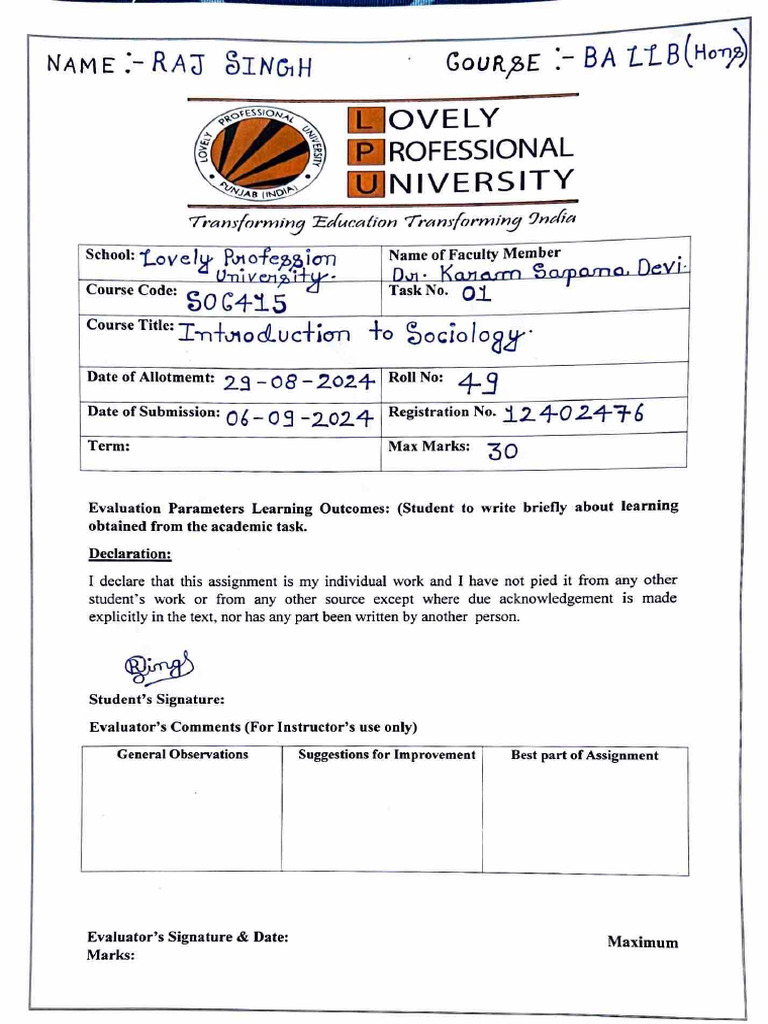 NAME :- RAJ SINGH
COURSE :- BA LLB (Hons)
LOVELY PROFESSIONAL UNIVERSITY
PUNJAB (INDIA)
LOVELY
PROFESSIONAL
UNIVERSITY
Transforming Education Transforming India
School: Lovely Profession
University.
Name of Faculty Member
Dr. Karam Sapana Devi.
Course Code: SOC415
Task No. 01
Course Title: Introduction to Sociology.
Date of Allotmemt: 29-08-2024
Roll No: 49
Date of Submission: 06-09-2024
Registration No. 12402476
Term:
Max Marks: 30
Evaluation Parameters Learning Outcomes: (Student to write briefly about learning
obtained from the academic task.
Declaration:
I declare that this assignment is my individual work and I have not pied it from any other
student's work or from any other source except where due acknowledgement is made
explicitly in the text, nor has any part been written by another person.
Student's Signature:
Evaluator's Comments (For Instructor's use only)
General Observations
Suggestions for Improvement
Best part of Assignment
Evaluator's Signature & Date:
Marks:
Maximum